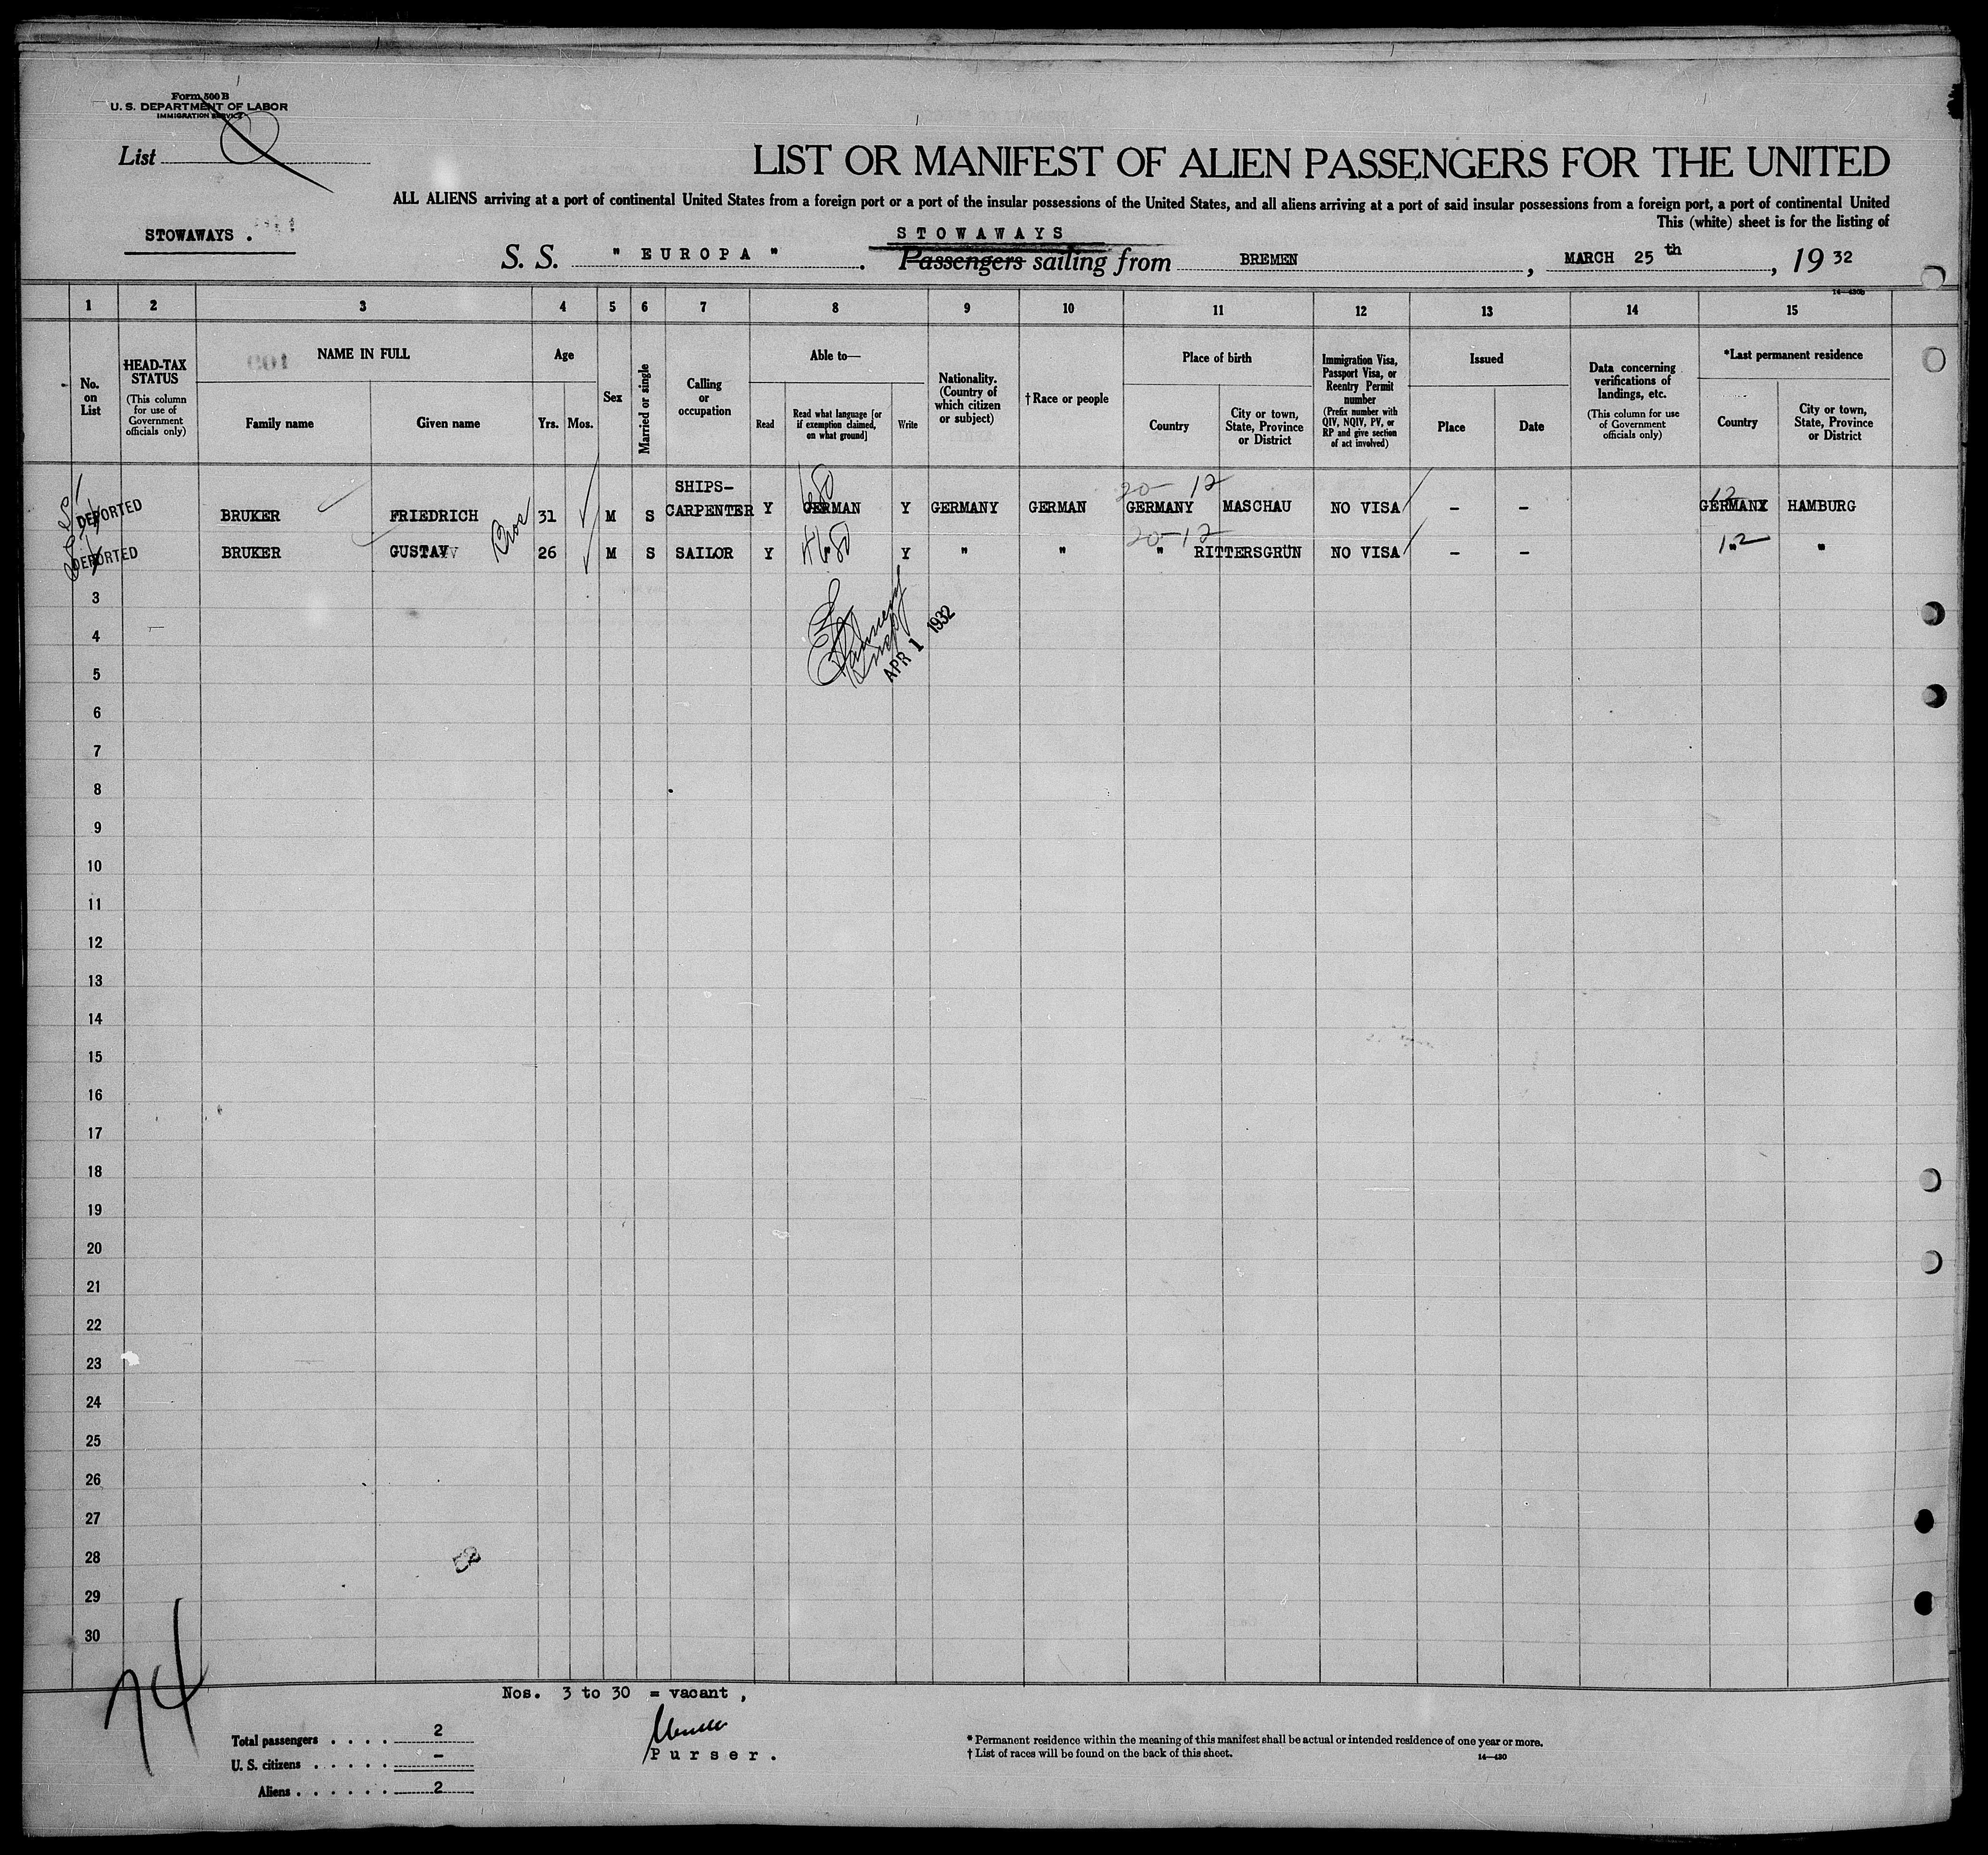 Form 500 B
U. S. DEPARTMENT OF LABOR
IMMIGRATION SERVICE
List
LIST OR MANIFEST OF ALIEN PASSENGERS FOR THE UNITED
ALL ALIENS arriving at a port of continental United States from a foreign port or a port of the insular possessions of the United States, and all aliens arriving at a port of said insular possessions from a foreign port, a port of continental United
This (white) sheet is for the listing of
STOWAWAYS .
STOWAWAYS
S. S. " EUROPA " . Passengers sailing from BREMEN , MARCH 25 th , 19 32
14—430b
1 2 3 4 5 6 7 8 9 10 11 12 13 14 15
No. on List
HEAD-TAX STATUS
(This column for use of Government officials only)
NAME IN FULL
Family name
Given name
Age
Yrs. Mos.
Sex
Married or single
Calling or occupation
Able to—
Read
Read what language [or if exemption claimed, on what ground]
Write
Nationality. (Country of which citizen or subject)
† Race or people
Place of birth
Country
City or town, State, Province or District
Immigration Visa, Passport Visa, or Reentry Permit number
(Prefix number with QIV, NQIV, PV, or RP and give section of act involved)
Issued
Place
Date
Data concerning verifications of landings, etc.
(This column for use of Government officials only)
*Last permanent residence
Country
City or town, State, Province or District
DEPORTED BRUKER FRIEDRICH 31 M S SHIPS-CARPENTER Y GERMAN Y GERMANY GERMAN 20-12 GERMANY MASCHAU NO VISA - - 12 GERMANY HAMBURG
DEPORTED BRUKER GUSTAV Bros 26 M S SAILOR Y " Y " " 20-12 " RITTERSGRÜN NO VISA - - 12 " "
APR 1 1932
3
4
5
6
7
8
9
10
11
12
13
14
15
16
17
18
19
20
21
22
23
24
25
26
27
28
29
30
74
Nos. 3 to 30 = vacant ,
Purser.
Total passengers . . . . 2
U. S. citizens . . . . . -
Aliens . . . . . . 2
* Permanent residence within the meaning of this manifest shall be actual or intended residence of one year or more.
† List of races will be found on the back of this sheet.
14—430